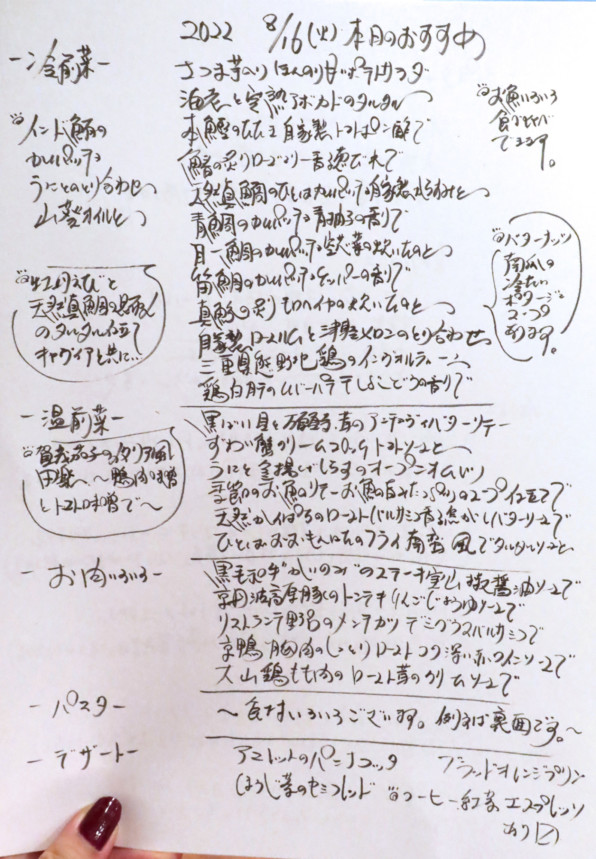 2022 8/16(火) 本日のおすすめ
ー冷前菜ー
さつま芋のほんのり甘いポテトサラダ
海老と完熟アボカドのタルタル
本鰹のたたき 自家製トマトポン酢で
鰆の炙りローズマリー香る
天然真鯛のひとはカルパッチョ 自家製からすみと
青鯛のカルパッチョ 青柚子の香りで
目一鯛のカルパッチョ
笛鯛のカルパッチョ ケッパーの香りで
真の炙り
自家製ローストハムと メロンのとり合わせ
三重県熊野地鶏のインヴォルティーニ
鶏白肝のレバーパテ 黒こしょうの香りで
インド鮪の
カルパッチョ
うにとのとり合わせ
山葵オイルと
牡丹えびと
天然真鯛の昆布〆
のタルタル仕立て
キャヴィアと共に…
お魚いろいろ
食べくらべ
できます。
バターナッツ
南瓜の
冷たい
ポタージュ
スープ
あります。
ー温前菜ー
黒ばい貝と 青のアンチョヴィバターソテー
ずわい蟹クリームコロッケ トマトソースと
うにと釜揚げしらすのオープンオムレツ
季節のお魚のソテー お魚の旨みたっぷりのスープ仕立てで
天然かんぱちのロースト バルサミコ香る焦がしバターソースで
ひとはおおもんはたのフライ 南蛮風でタルタルソースと
賀茂茄子のイタリア風
田楽 〜鴨肉味噌
とトマト味噌で〜
ーお肉いろいろー
黒毛和牛 のステーキ 山椒醤油ソースで
京丹波高原豚のトンテキ りんごじょうゆソースで
リストランテ野呂のメンチカツ デミグラスバルサミコで
京鴨胸肉のしっとりロースト コク深い赤ワインソースで
大山鶏もも肉のロースト 茸のクリームソースで
ーパスター
〜色々いろいろございます。例えば裏面です。〜
ーデザートー
アマレットのパンナコッタ
ブラッドオレンジプリン
ほうじ茶のセミフレッド
コーヒー 紅茶 エスプレッソ
あり